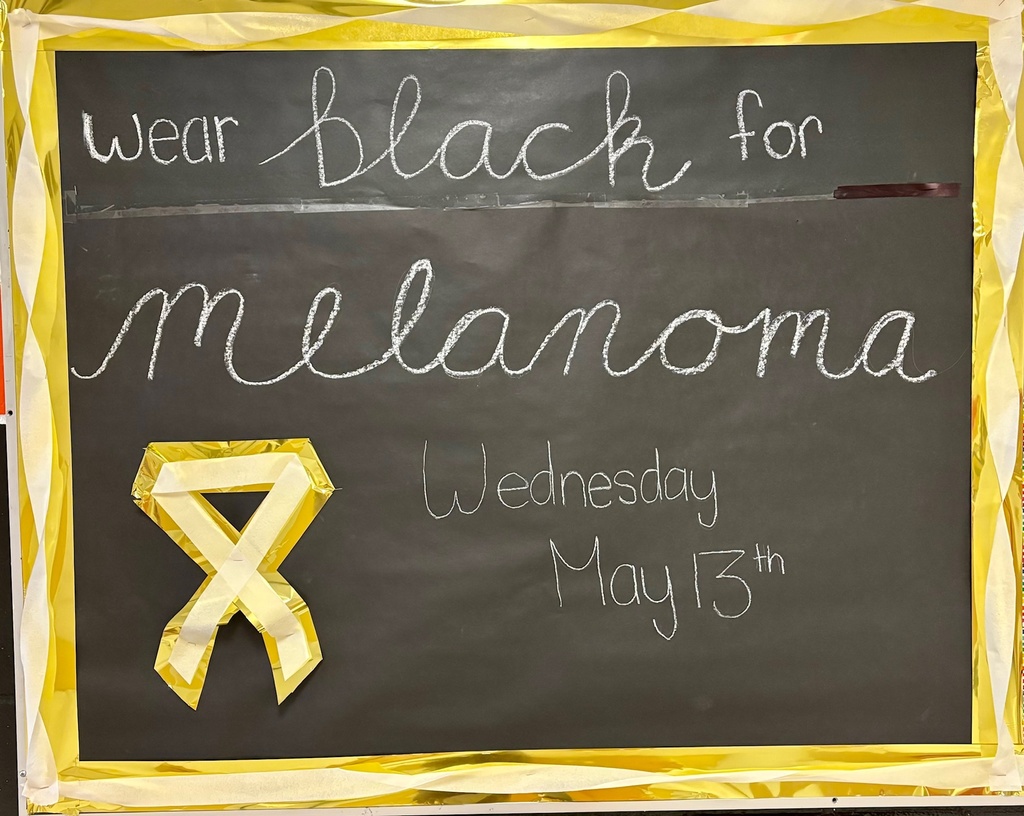 wear black for
melanoma
Wednesday
May 13th